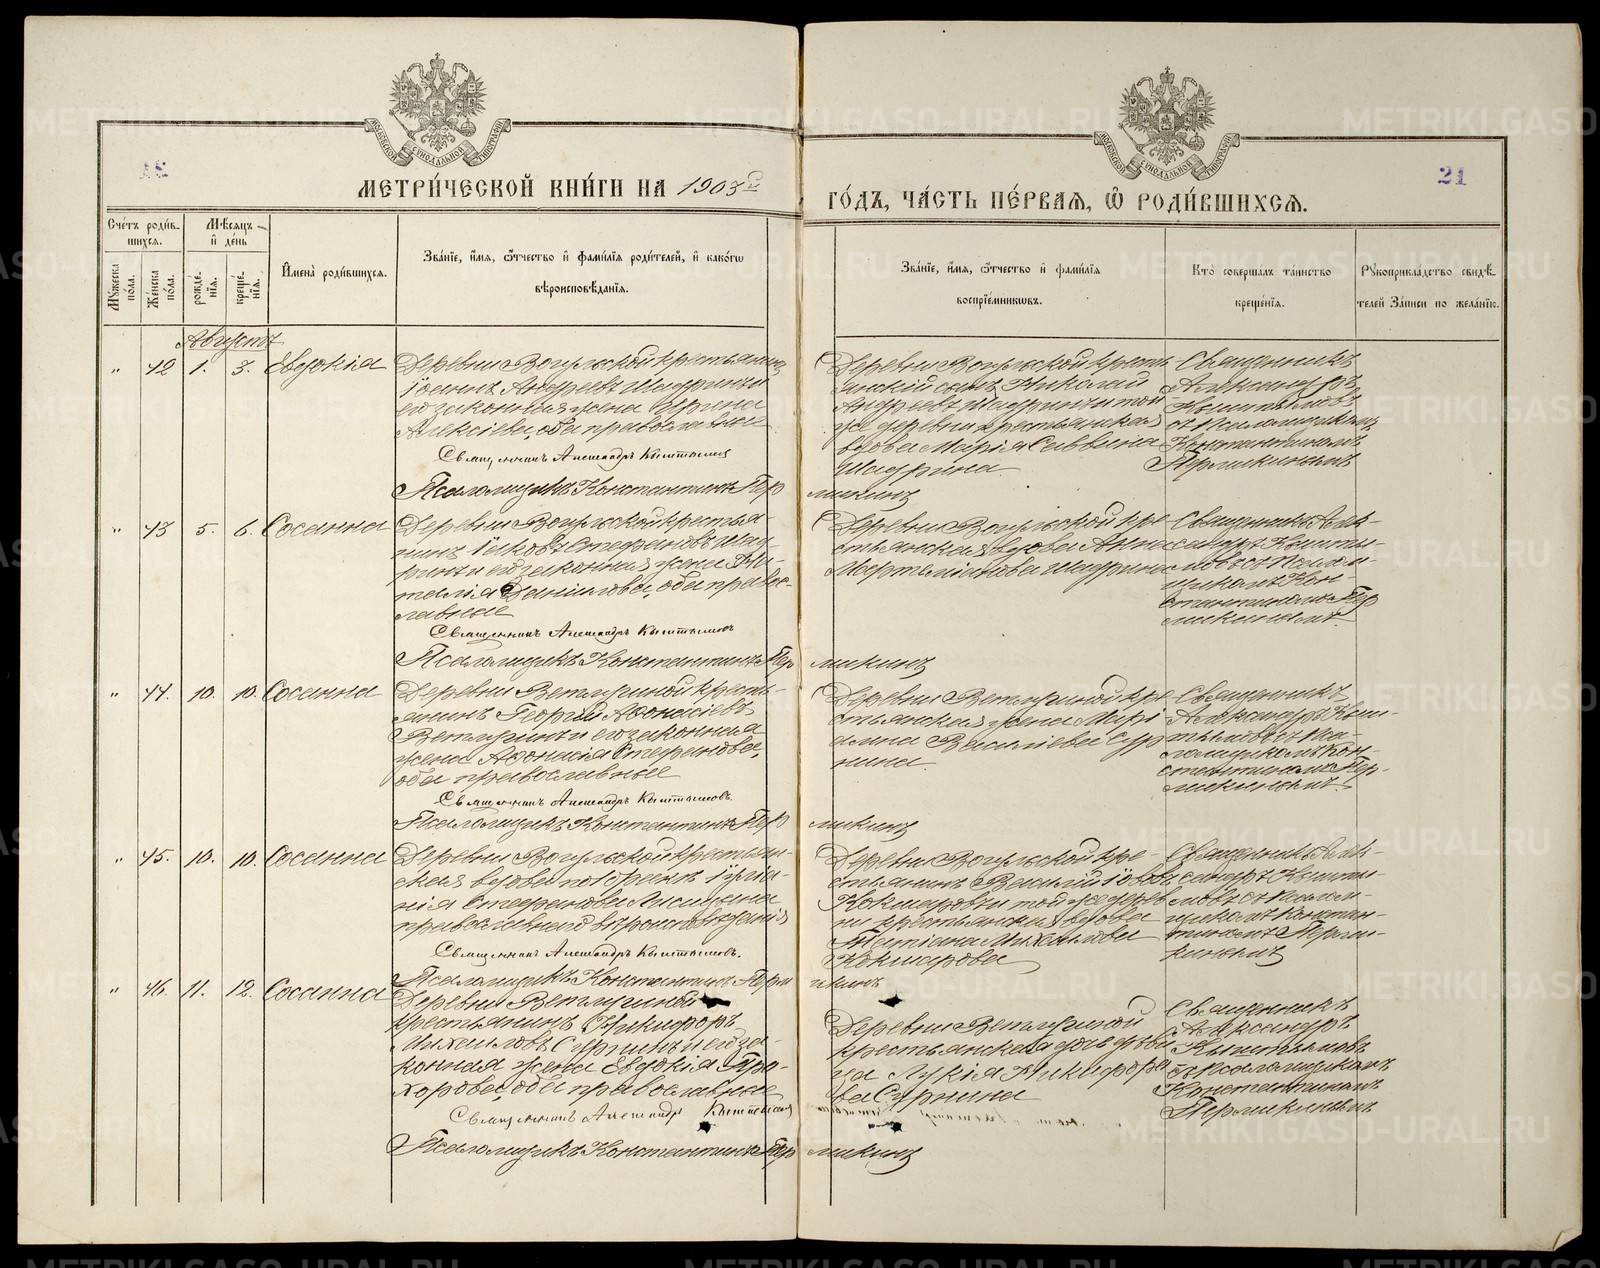 МЕТРИ́ЧЕСКОЙ КНИ́ГИ НА 1903й
ГО́ДЪ, ЧА́СТЬ ПЕ́РВАЯ, Ѽ РОДИ́ВШИХСЯ.
21
Сче́тъ роди́в-
шихся.
Мꙋ́жеска по́ла.
Же́нска по́ла.
Мѣ́сяцъ
и҆ де́нь
рожде́-
нїя.
креще́-
нїя.
И҆мена̀ роди́вшихся.
Зва́нїе, и҆́мя, ѻ҆́тчество и҆ фами́лїя роди́телей, и҆ како́гѡ
вѣроисповѣ́данїя.
Зва́нїе, и҆́мя, ѻ҆́тчество и҆ фами́лїя
воспрїе́мникѡвъ.
Кто̀ соверша́лъ та́инство
креще́нїя.
Рꙋкоприкла́дство свидѣ́-
телей За́писи по жела́нїю.
Августъ
" 42 1. 3. Евдокія
Деревни Вогульской крестьянинъ
Іоаннъ Андреевъ Шадринъ и
его законная жена Ирина
Алексіева, оба православные
Священникъ Александръ Кыштымовъ
Псаломщикъ Константинъ Пермикинъ
Деревни Вогульской кресть-
янскій сынъ Николай
Андреевъ Шадринъ и той
же деревни крестьянская
вдова Марія Саввина
Шадрина
Священникъ
Александръ
Кыштымовъ
съ псаломщикомъ
Константиномъ
Пермикинымъ
" 43 5. 6. Сосанна
Деревни Вогульской крестья-
нинъ Іаковъ Стефановъ Шад-
ринъ и его законная жена На-
талія Даніилова, оба правос-
лавные
Священникъ Александръ Кыштымовъ
Псаломщикъ Константинъ Пермикинъ
Деревни Вогульской кре-
стьянская вдова Анна
Шадрина
Священникъ Алек-
сандръ Кышты-
мовъ съ псалом-
щикомъ Кон-
стантиномъ Пер
микинымъ.
" 44. 10. 10. Сосанна
Деревни Ветлугиной кресть-
янинъ Георгій Афонасіевъ
Ветлугинъ и его законная
жена Афонасія Стефанова,
оба православные
Священникъ Александръ Кыштымовъ.
Псаломщикъ Константинъ Пермикинъ
Деревни Ветлугиной кре
стьянская жена Марі
амна Васильева Сур
нина
Священникъ
Александръ Кыш-
тымовъ съ пса-
ломщикомъ Кон-
стантиномъ Пер-
микинымъ.
" 45. 10. 10. Сосанна
Деревни Вогульской крестьян-
ская вдова
православнаго вѣроисповѣданія
Священникъ Александръ Кыштымовъ.
Псаломщикъ Константинъ Пермикинъ
Деревни Вогульской кре-
стьянинъ Василій Іововъ
Кокшаровъ и той же дерев
ни крестьянская вдова
Татіана Михаилова
Кокшарова
Священникъ Алек-
сандръ Кышты-
мовъ съ псалом-
щикомъ Констан-
тиномъ Перми-
кинымъ
" 46. 11. 12. Сосанна
Деревни Ветлугиной
крестьянинъ Никифоръ
Михаиловъ Сурнинъ и его за-
конная жена Евдокія Про-
хорова, оба православные
Священникъ Александръ Кыштымовъ
Псаломщикъ Константинъ Пермикинъ
Деревни Ветлугиной
крестьянская дочь дѣви
ца Лукія Никифоро
ва Сурнина
Священникъ
Александръ
Кыштымовъ
съ псаломщикомъ
Константиномъ
Пермикинымъ
METRIKI.GASO-URAL.RU